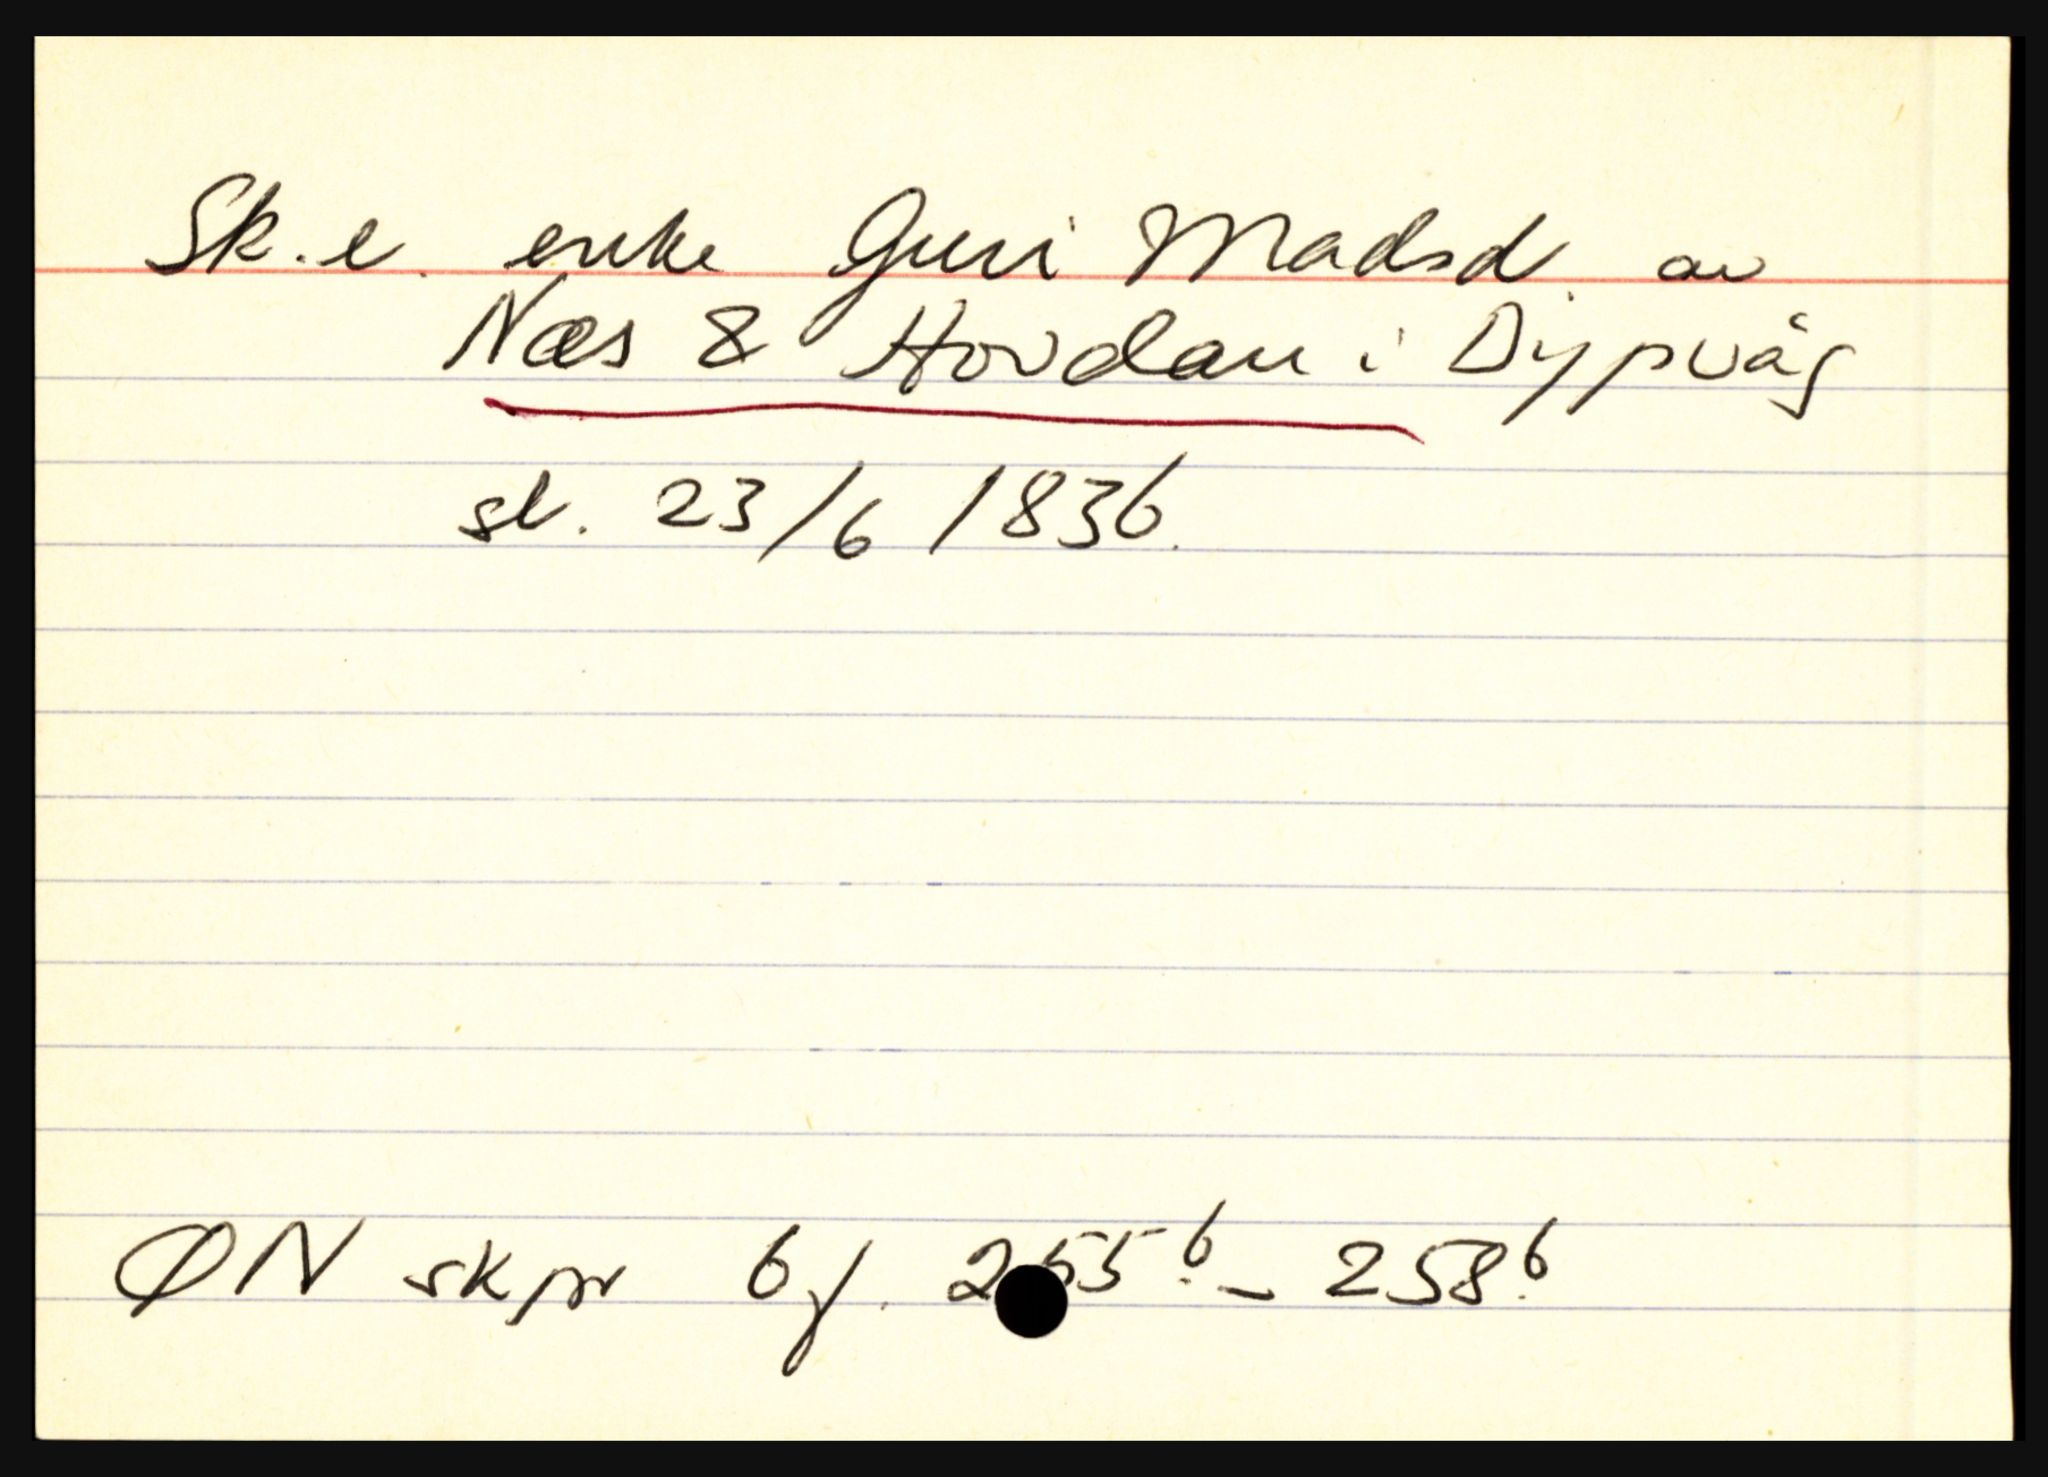 Sk. e. enke Guri Madsd av
Næs & Hovdan i Dypvåg
sl. 23/6 1836.
ØN skpr 6 f. 255b. – 258b.